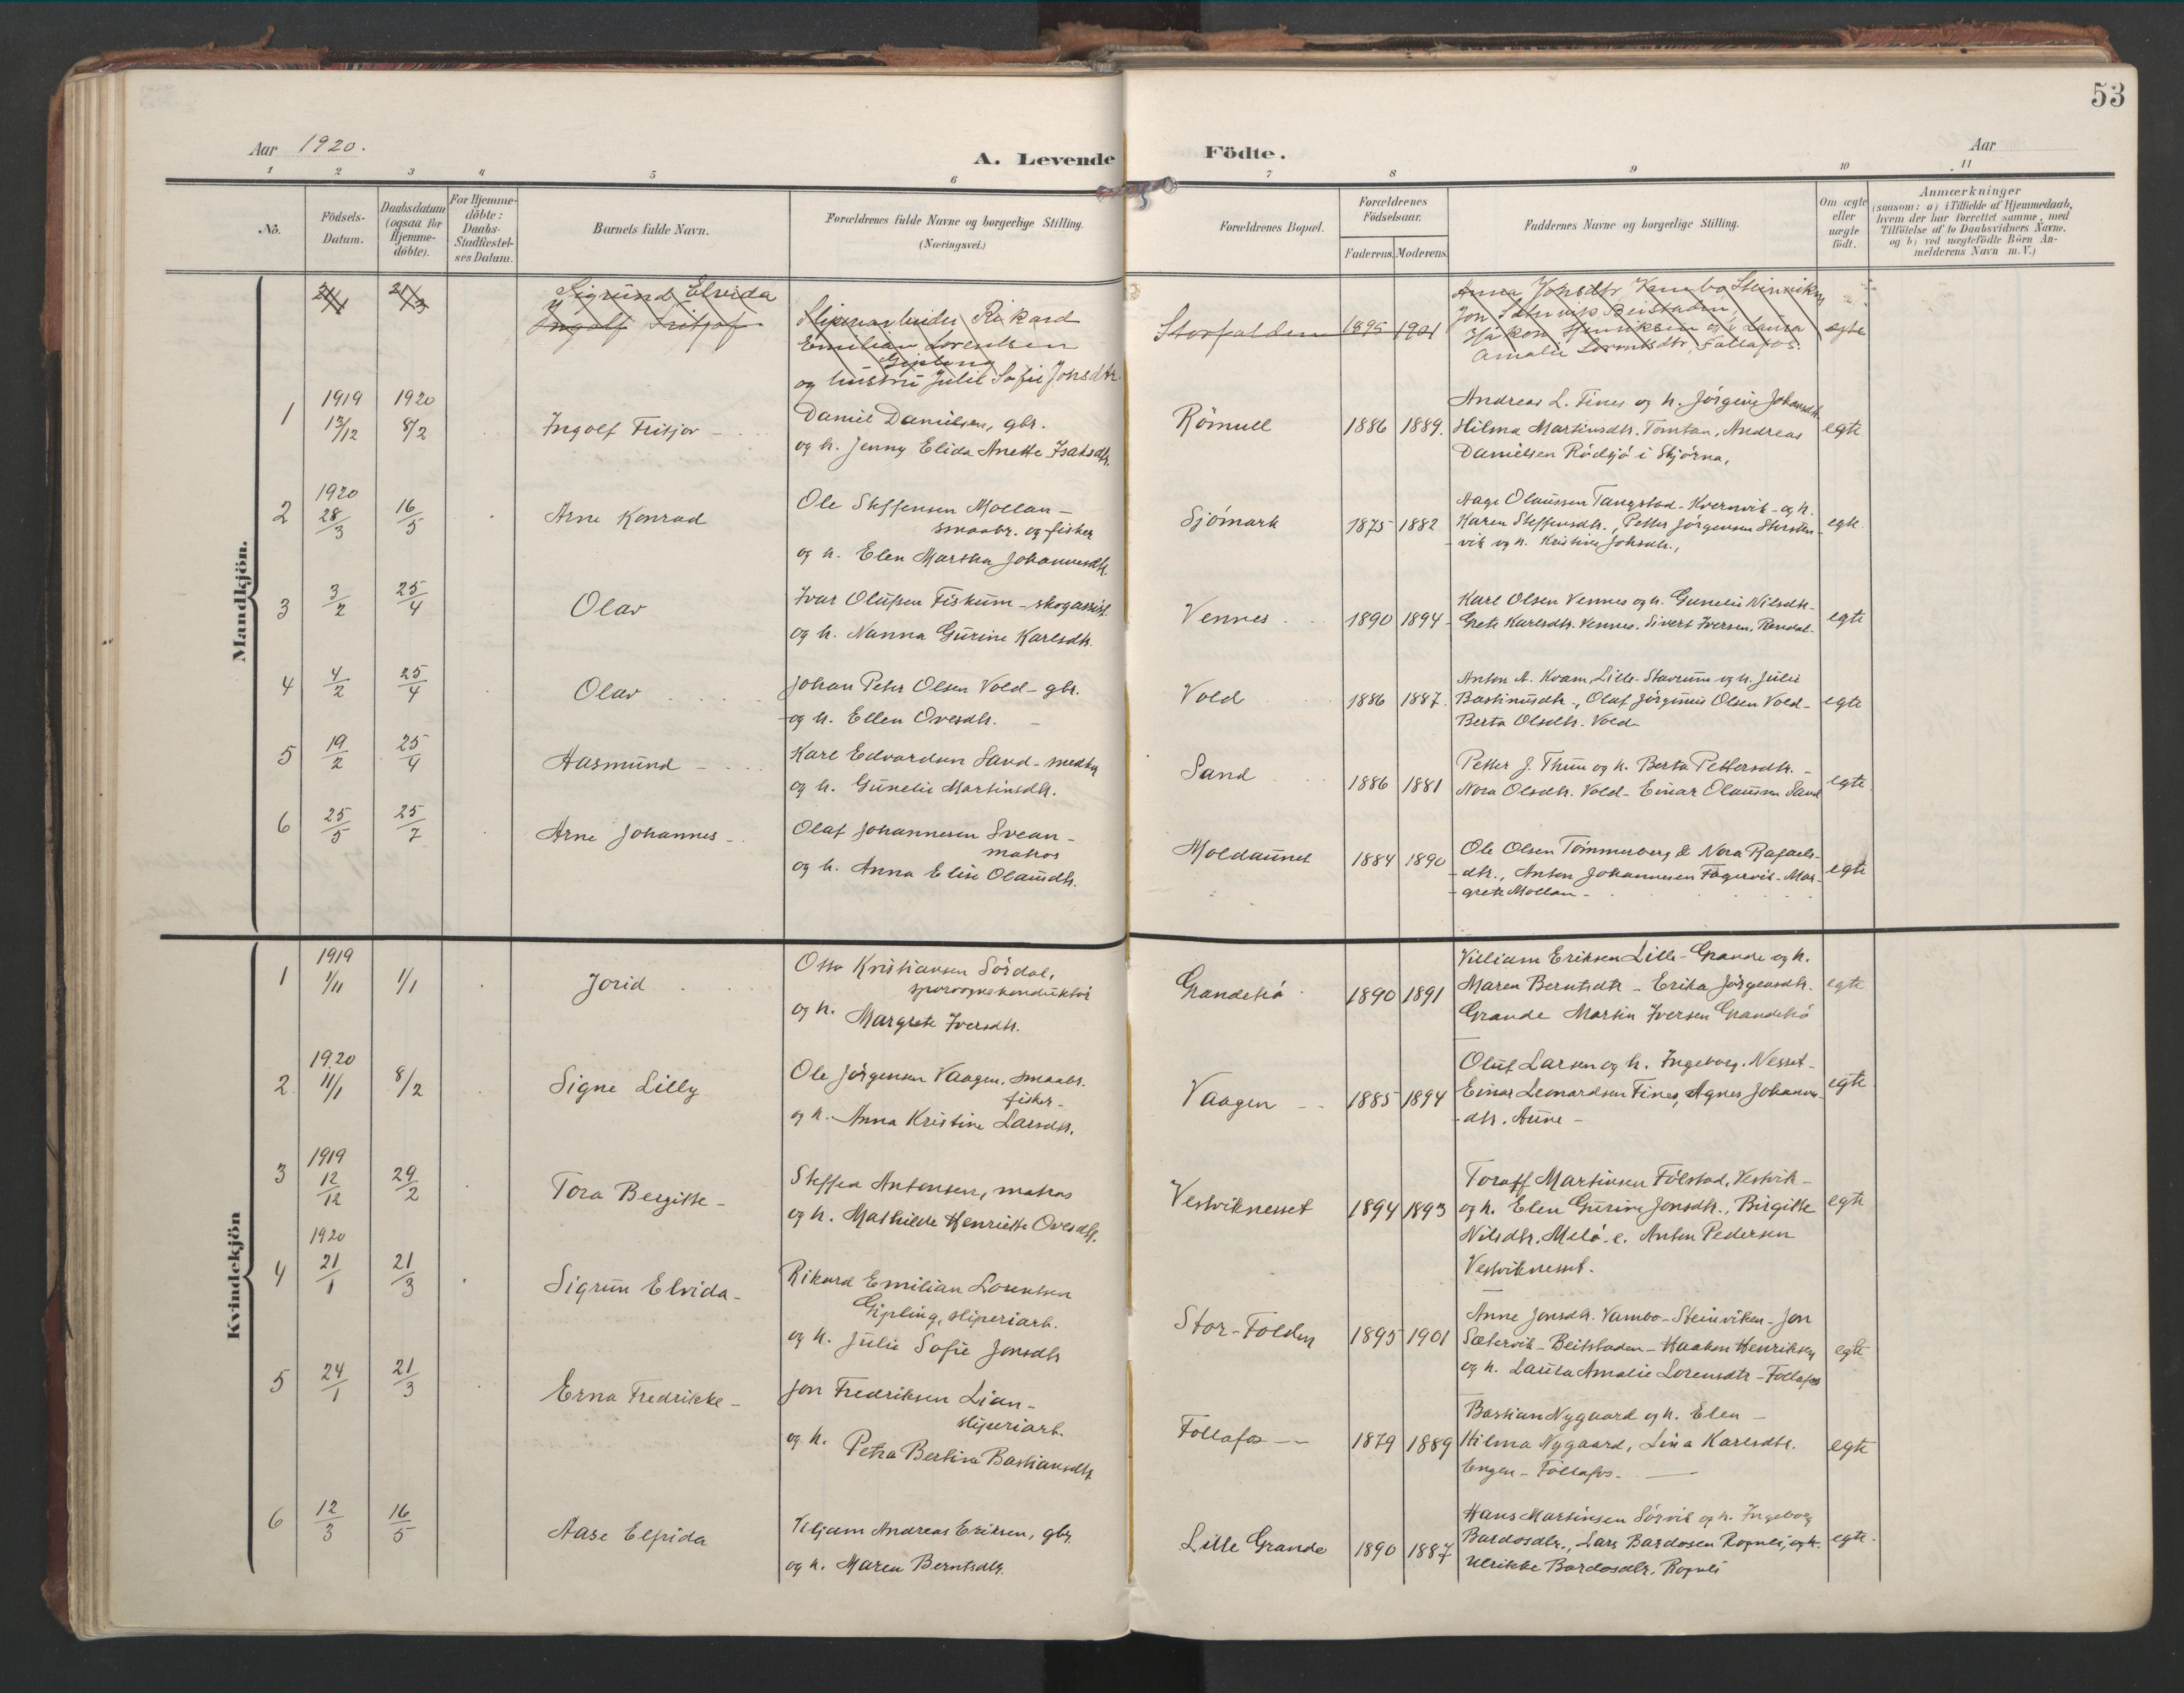 53
Aar 1920.
A. Levende Födte.
Aar
1 2 3 4 5 6 7 8 9 10 11
No.
Födsels-
Datum.
Daabsdatum
(ogsaa for
Hjemme-
döbte).
For Hjemme-
döbte:
Daabs-
Stadfæstel-
ses Datum.
Barnets fulde Navn.
Forældrenes fulde Navne og borgerlige Stilling.
(Næringsvei.)
Forældrenes Bopæl.
Forældrenes
Födselsaar.
Faderens. Moderens.
Faddernes Navne og borgerlige Stilling.
Om ægte
eller
uægte
födt.
Anmærkninger
(saasom: a) i Tilfælde af Hjemmedaab,
hvem der har forrettet samme, med
Tilföielse af to Daabsvidners Navne.
og b) ved uægtefödte Börn An-
melderens Navn m.V.)
Mandkjön.
21/1 21/3
Sigrund Elvida
Ingolf Fritjof
Sliperiarbeider Rikard
Emilian Lorentsen
Gipling
og hustru Julie Sofie Jonsdtr.
Storfolden 1895 1901
Anna Jonsdtr Vambo, Steinviken
Jon Sætervik Beitstaden,
Håkon Henriksen og h. Laura
Amalie Lorentsdtr, Follafos.
egte
1
1919 1920
13/12 8/2
Ingolf Fritjov
Daniel Danielsen, gbr.
og h. Jenny Elida Anette Isaksdtr.
Römull 1886 1889.
Andreas L. Fines og h. Jörgine Johansdtr.
Hilma Martinsdtr. Tomtan, Andreas
Danielsen Rödsjö i Skjörna,
egte
2
1920
28/3 16/5
Arne Konrad
Ole Steffensen Mollan -
smaabr. og fisker
og h. Elen Martha Johannesdtr.
Sjömark 1875 1882
Aage Olaussen Tangstad - Kvernvik - og h.
Karen Steffensdtr., Petter Jörgensen Storsten-
vik og h. Kristine Johsdtr.,
egte.
3
3/2 25/4
Olav
Ivar Olufsen Fiskum - skogassist.
og h. Nanna Gurine Karlsdtr.
Vennes 1890 1894
Karl Olsen Vennes og h. Gunelie Nilsdtr -
Grete Karlsdtr. Vennes. Sivert Iversen, Rendal -
egte
4
4/2 25/4
Olav
Johan Peter Olsen Vold - gbr.
og h. Ellen Ovesdtr. -
Vold 1886 1887.
Anton A. Kvam, Lille-Stavrum og h. Julie
Bastinusdtr., Olaf Jörginus Olsen Vold -
Berta Olsdtr. Vold
egte
5
19/2 25/4
Aasmund -
Karl Edvardsen Sand -
og h. Gunelie Martinsdtr.
Sand 1886 1881
Petter J. Thun og h. Berta Pettersdtr. -
Nora Olsdtr. Vold - Einar Olaussen Sand
egte
6
25/5 25/7
Arne Johannes -
Olaf Johannesen Svean -
matros
og h. Anna Elise Olausdtr.
Moldaunet 1884 1890
Ole Olsen Tömmerberg & Nora Rafaels-
dtr., Anton Johannesen Fagervik - Mar-
grete Mollan -
egte
Kvindekjön
1
1919
1/11 1/1
Jorid
Otto Kristiansen Sördal,
sporvognskonduktör
og h. Margrete Iversdtr.
Grandekó 1890 1891
Villiam Eriksen Lille-Grande og h.
Maren Berntsdtr - Erika Jörgensdtr.
Grande Martin Iversen Grandekó
egte
2
1920
11/1 8/2
Signe Lilly
Ole Jörgensen Vaagen, smaabr.
fisker -
og h. Anna Kristine Larsdtr.
Vaagen 1885 1894
Oluf Larsen og h. Ingeborg, Nesset -
Einar Leonardsen Fines, Agnes Johannes-
dtr. Aune -
egte
3
1919
12/12 29/2
Tora Bergitte -
Steffen Antonsen, matros
og h. Mathilde Henriette Ovesdtr.
Vestviknesset 1894 1893
Toralf Martinsen Fölstad, Vestvik -
og h. Elen Gurine Jonsdtr., Birgitte
Nilsdtr. Melö. e. Anton Pedersen
Vestviknesset.
egte
4
1920
21/1 21/3
Sigrun Elvida -
Rikard Emilian Lorentsen
Gipling, sliperiarb.
og h. Julie Sofie Jonsdtr
Stor-Folden 1895 1901
Anne Jonsdtr. Vambo - Steinviken - Jon
Sætervik - Beitstaden - Haakon Henriksen
og h. Laura Amalie Lorensdtr - Follafos
egte
5
24/1 21/3
Erna Fredrikke -
Jon Fredriksen Lian -
sliperiarb.
og h. Petra Bertine Bastiansdtr.
Follafos - 1879 1889
Bastian Nygaard og h. Elen -
Hilma Nygaard, Lina Karlsdtr.
Engen - Follafos. -
egte
6
12/3 16/5
Aase Elfrida
Viljam Andreas Eriksen, gbr.
og h. Maren Berntsdtr.
Lille Grande 1890 1887
Hans Martinsen Sörvik og h. Ingeborg
Bardosdtr., Lars Bardosen Ropnli, og h.
Ulrikke Bardosdtr. Ropnli
egte.